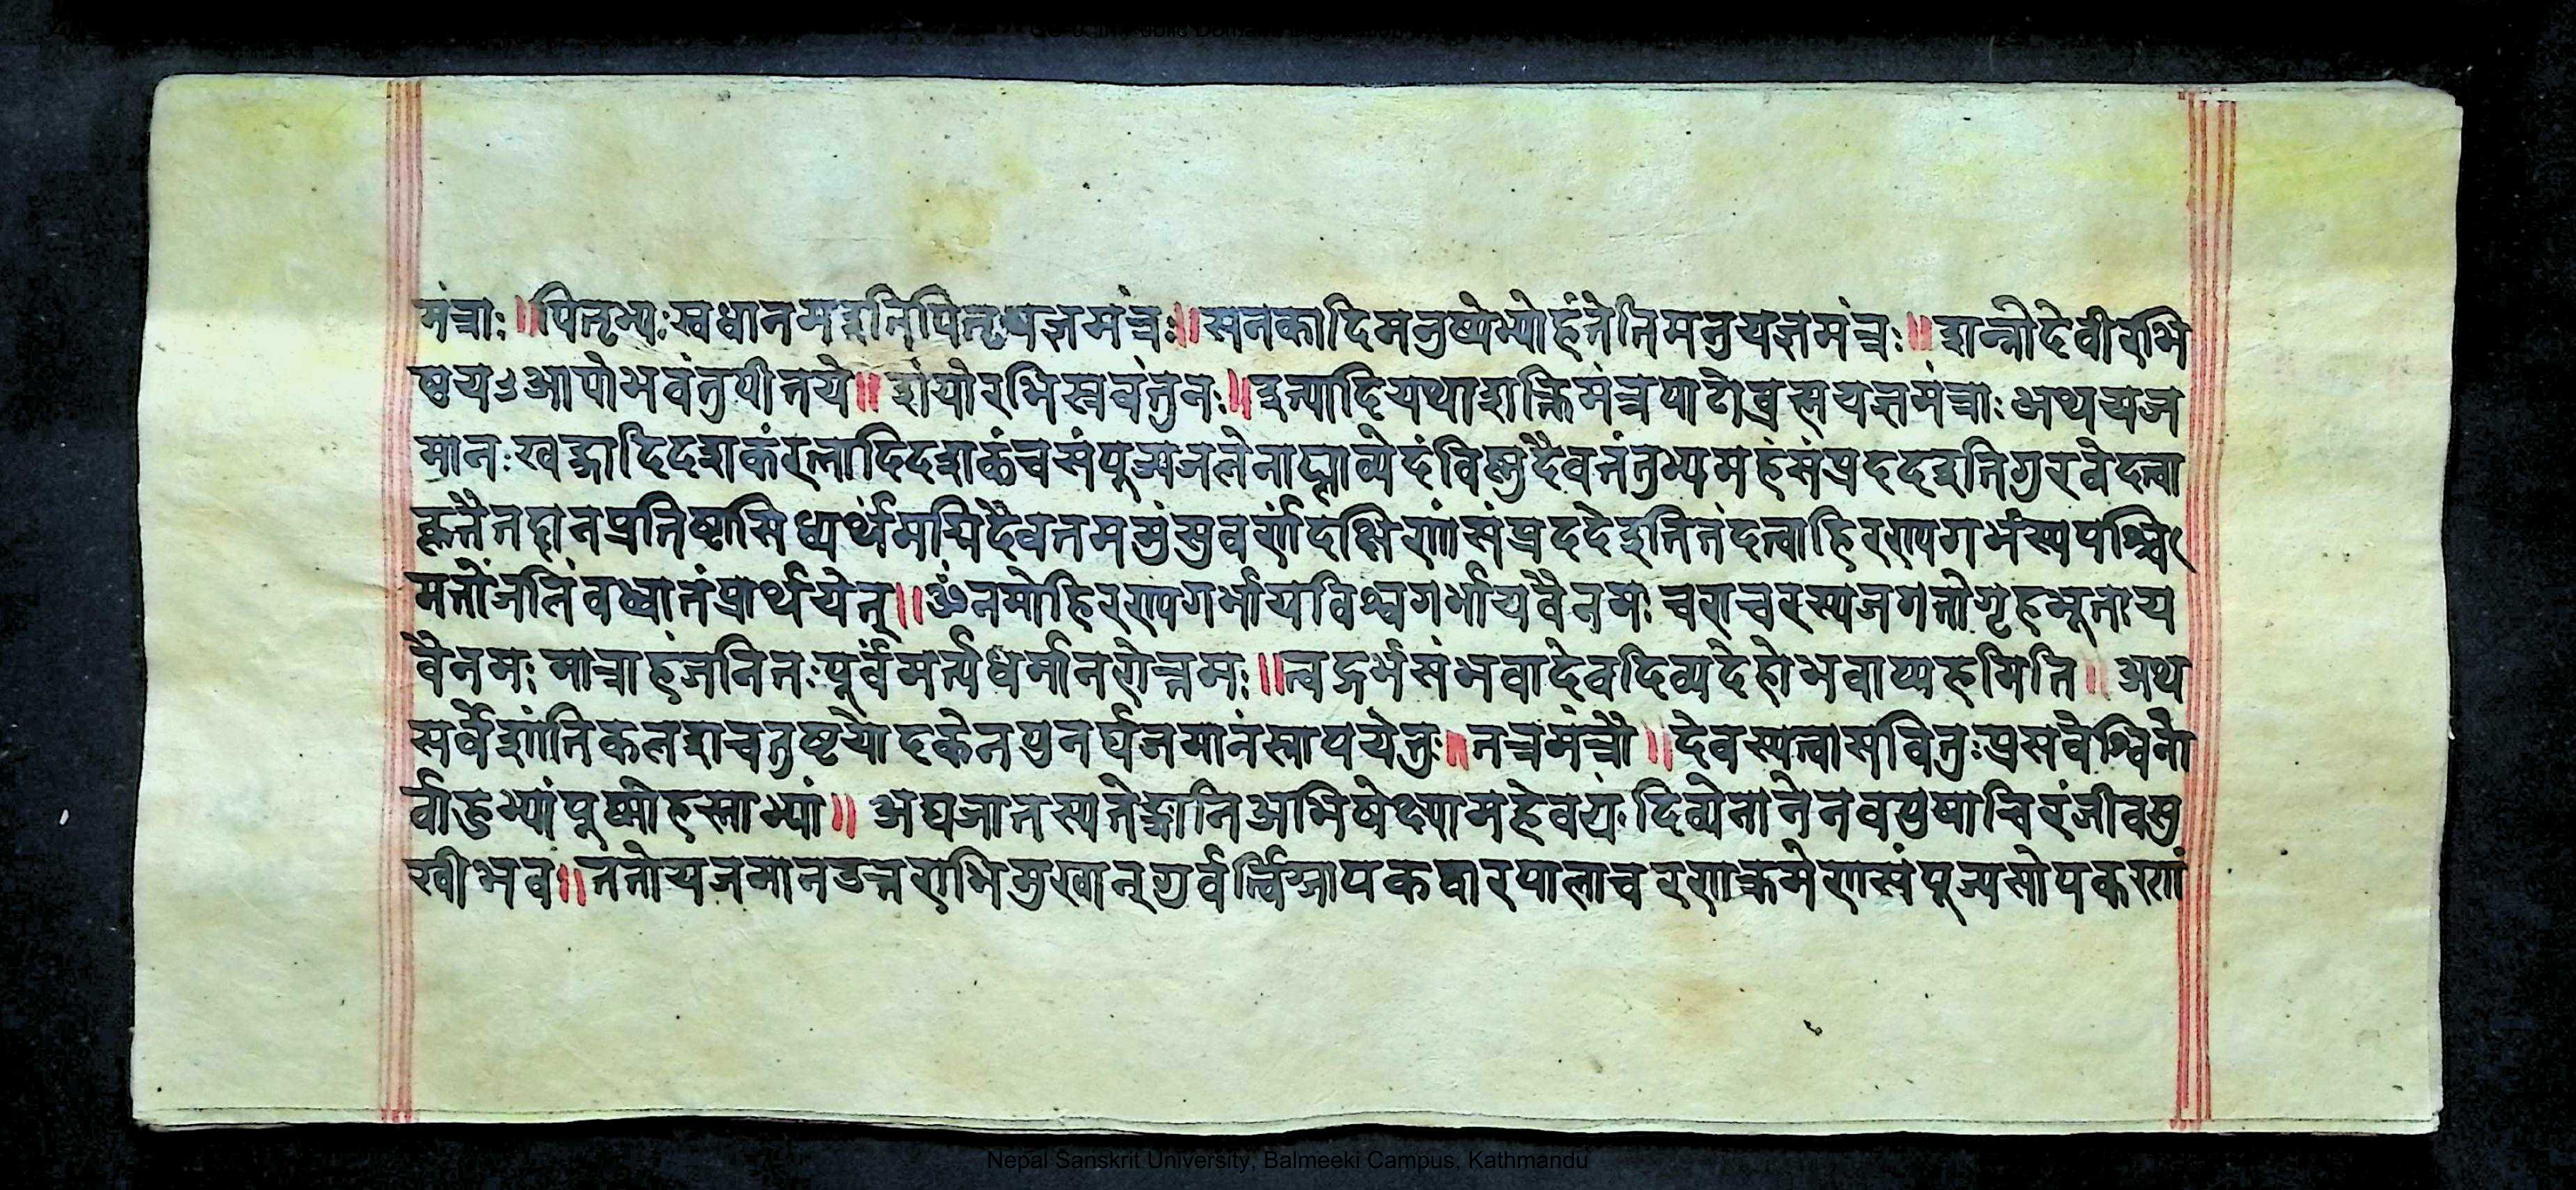 मंत्राः ॥ पितृभ्यः स्वधानम इति पितृयज्ञमंत्रः ॥ सनकादिमनुष्येभ्योहंतेति मनुयज्ञमंत्रः ॥ शन्नोदेवीरभि
ष्टय ऽआपोभवंतुपीतये ॥ शंयोरभिस्रवंतुनः ॥ इत्यादियथाशक्तिमंत्रपाठोब्रह्मयज्ञमंत्राः अथयज
मानः खड्गादिदशकंरत्नादिदशकंचसंपूज्यजलेनाप्लाव्येदंविष्णुदैवतंतुभ्यमहंसंप्रददइतिगुरवेदत्वा
कृतैतद्दानप्रतिष्ठासिध्यर्थमग्निदैवतममुंसुवर्णंदक्षिणांसंप्रददेइतितंदत्वाहिरण्यगर्भस्यपश्चि
मतोंजलिंवध्वातंप्रार्थयेत् ॥ ॐनमोहिरण्यगर्भायविश्वगर्भायवैनमः चराचरस्यजगतोगृहभूताय
वैनमः मात्राहंजनितःपूर्वंमर्त्यधर्मानरोत्तमः ॥ त्वद्गर्भसंभवादेवदिव्यदेहोभवाम्यहमिति ॥ अथ
सर्वेशांतिकलशचतुष्टयोदकेनपुनर्यजमानंस्नापयेतुः ॥ तत्रमंत्रौ ॥ देवस्यत्वासवितुःप्रसवेश्विनो
र्वाहुभ्यांपुष्णोहस्ताभ्यां ॥ अद्यजातस्यतेङ्गानिअभिषेक्ष्यामहेवयं दिव्येनानेनवपुषाचिरंजीवसु
खीभव ॥ ततोयजमानउत्तराभिमुखान्गुर्वर्त्विग्जापकद्वारपालाचरणक्रमेणसंपूज्यसोपकरणां
Nepal Sanskrit University, Balmeeki Campus, Kathmandu